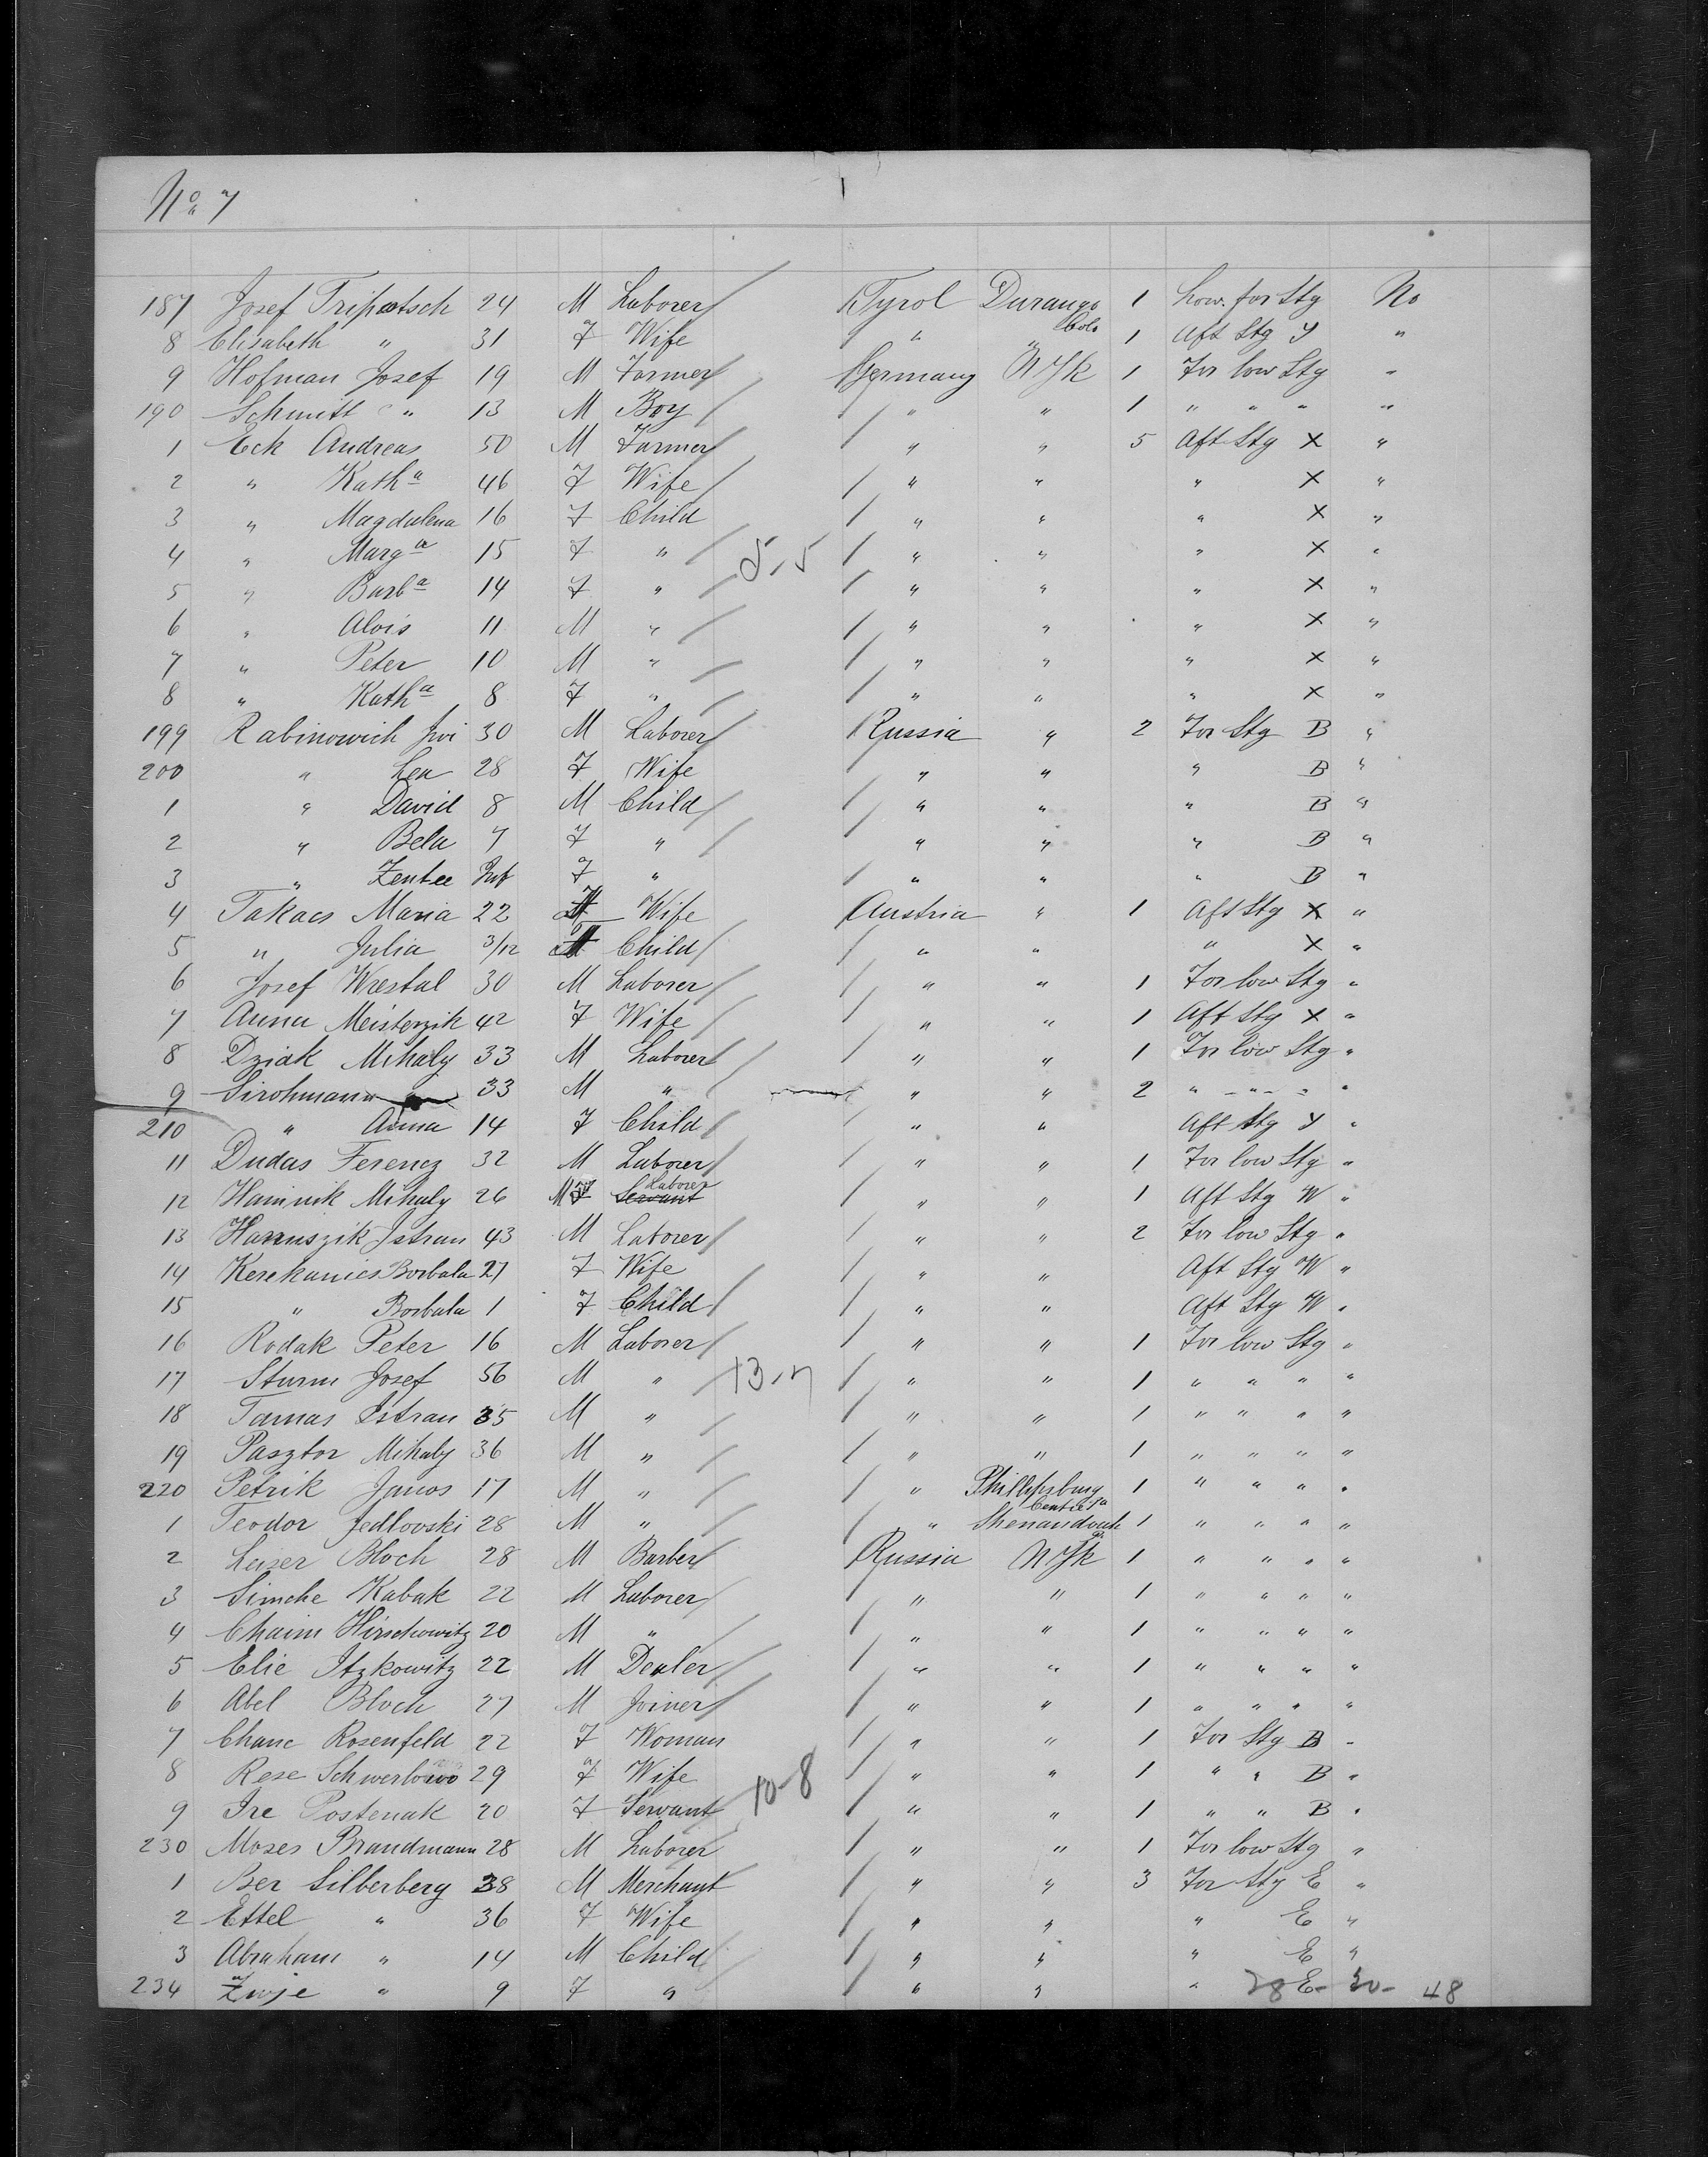 No 7
187 Josef Tripotsch 24 M Laborer Tyrol Durango Colo 1 Low. for Stg No
8 Elisabeth " 31 F Wife " " 1 Aft Stg Y "
9 Hofman Josef 19 M Farmer Germany N Yk 1 For low Stg "
190 Schmitt " 13 M Boy " " 1 " " " "
1 Eck Andreas 50 M Farmer " " 5 Aft Stg X "
2 " Katha 46 F Wife " " " X "
3 " Magdalena 16 F Child " " " X "
4 " Marga 15 F " 5-5 " " " X "
5 " Barba 14 F " " " " X "
6 " Alois 11 M " " " " X "
7 " Peter 10 M " " " " X "
8 " Katha 8 F " " " " X "
199 Rabinowich Jwi 30 M Laborer Russia " 2 For Stg B "
200 " Lea 28 F Wife " " " B "
1 " David 8 M Child " " " B "
2 " Bela 7 F " " " " B "
3 " Zentee Inf F " " " " B "
4 Takacs Maria 22 F Wife Austria " 1 Aft Stg X "
5 " Julia 3/12 F Child " " " X "
6 Josef Wrestal 30 M Laborer " " 1 For low Stg "
7 Anna Meisterzik 42 F Wife " " 1 Aft Stg X "
8 Dziak Mihaly 33 M Laborer " " 1 For low Stg "
9 Sirohmann 33 M " " " 2 " " " "
210 " Anna 14 F Child " " Aft Stg Y "
11 Dudas Ferencz 32 M Laborer " " 1 For low Stg "
12 Haninik Mihaly 26 M F Servant Laborer " " 1 Aft Stg W "
13 Hanuszik Istran 43 M Laborer " " 2 For low Stg "
14 Kerekanics Borbala 27 F Wife " " Aft Stg W "
15 " Borbala 1 F Child " " Aft Stg W "
16 Rodak Peter 16 M Laborer " " 1 For low Stg "
17 Sturm Josef 56 M " 13-7 " " 1 " " " "
18 Tamas Istran 35 M " " " 1 " " " "
19 Pasztor Mihaly 36 M " " " 1 " " " "
220 Petrik Janos 17 M " " Phillipsburg Centre Pa 1 " " " "
1 Teodor Jedlovski 28 M " " Shenandoah 1 " " " "
2 Leiser Bloch 28 M Barber Russia N Yk 1 " " " "
3 Simche Kabak 22 M Laborer " " 1 " " " "
4 Chaim Hirschowitz 20 M " " " 1 " " " "
5 Elie Itzkowitz 22 M Dealer " " 1 " " " "
6 Abel Bloch 27 M Joiner " " 1 " " " "
7 Chane Rosenfeld 22 F Woman " " 1 For Stg B "
8 Rese 29 F Wife " " 1 " " B "
9 Ire Postenak 20 F Servant 10-8 " " 1 " " B "
230 Moses Brandmann 28 M Laborer " " 1 For low Stg "
1 Ber Silberberg 38 M Merchant " " 3 For Stg E "
2 Ettel " 36 F Wife " " " E "
3 Abraham " 14 M Child " " " E "
234 Zwje " 9 F " " " " E
28 - 20 - 48